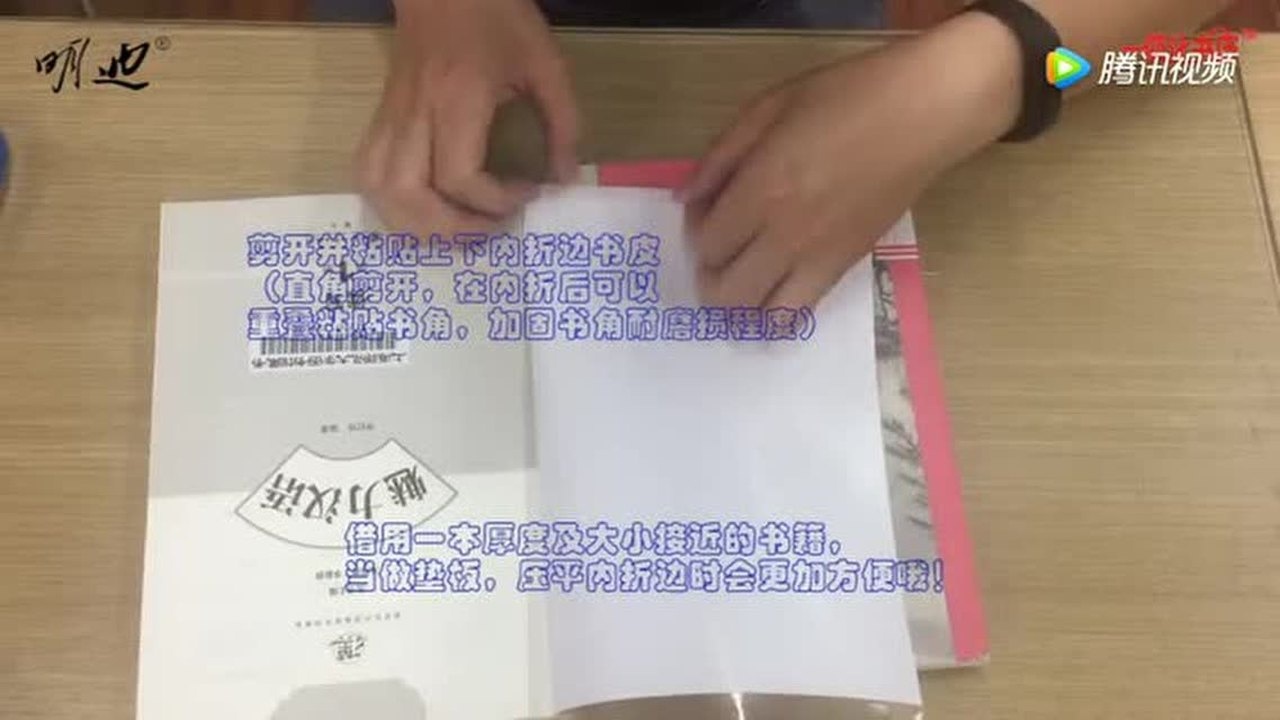 明迪
腾讯视频
剪开并粘贴上下内折边书皮
（直角剪开，在内折后可以
重叠粘贴书角，加固书角耐磨损程度）
上海师范大学图书馆藏书
魅力汉语
借用一本厚度及大小接近的书籍，
当做垫板，压平内折边时会更加方便哦！